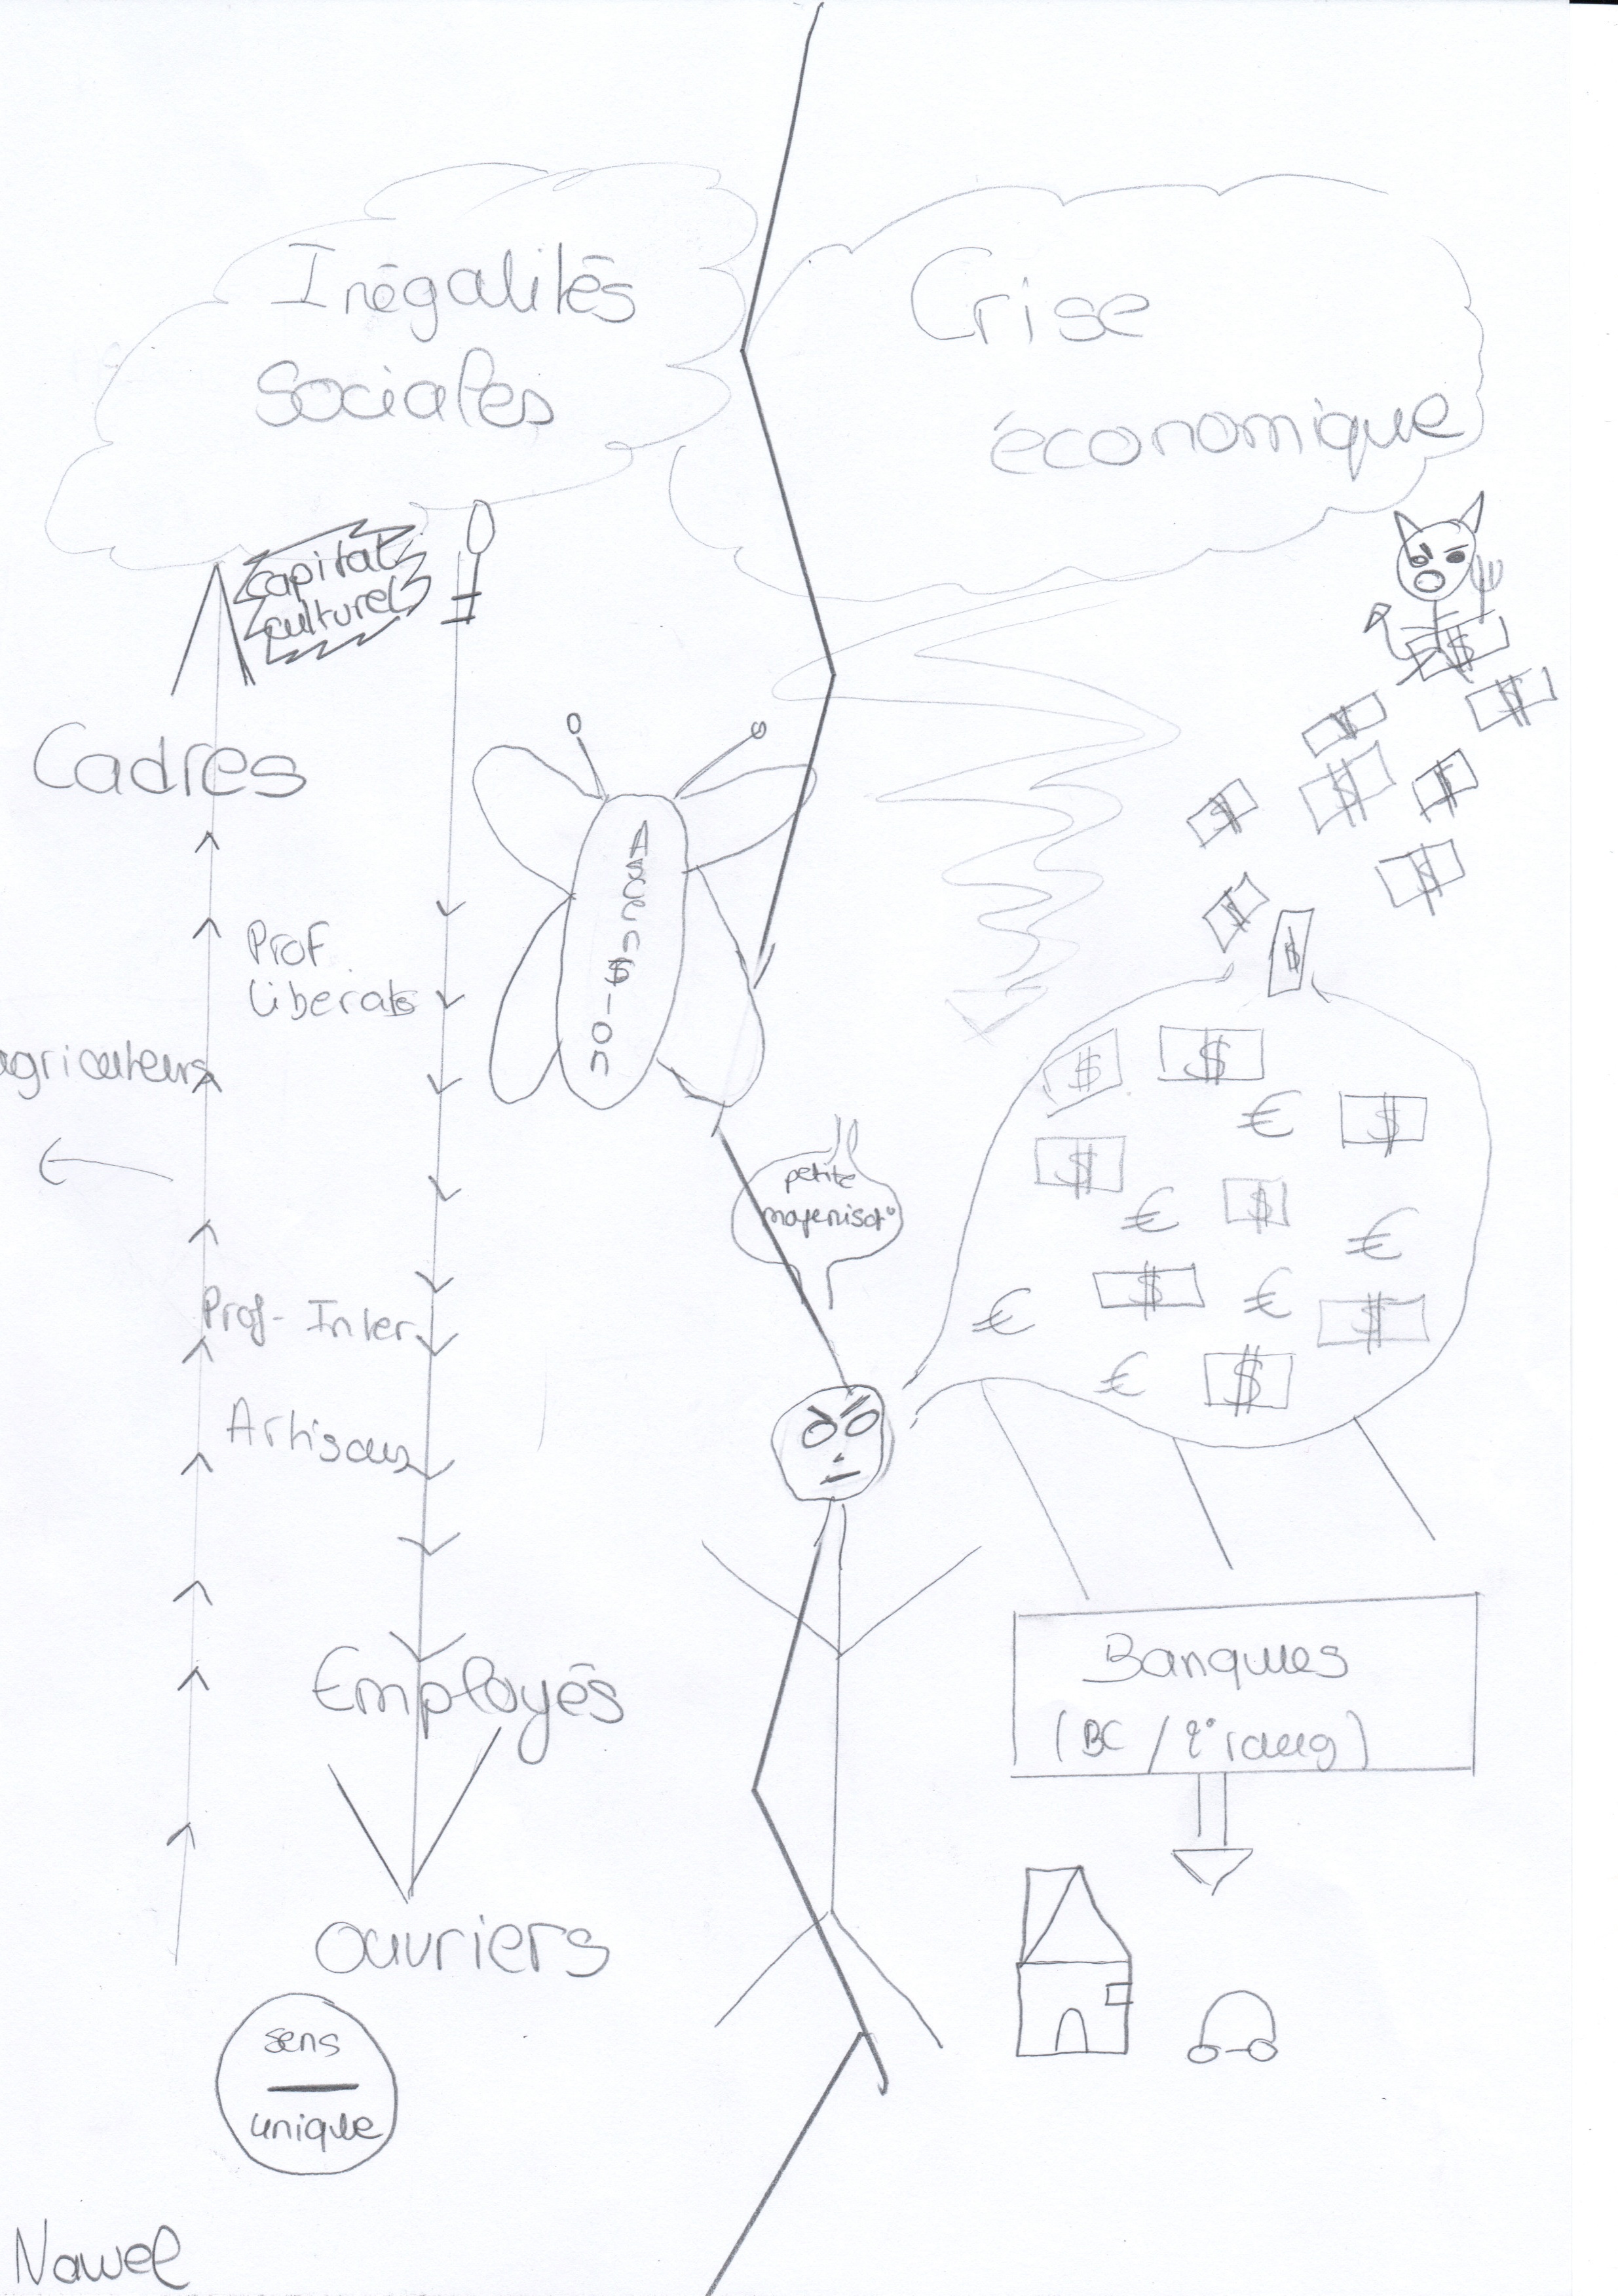 Inégalités
sociales
Crise
économique
capital
culturel
Cadres
Prof
agriculteurs
Ascen$ion
petite
moyenisat°
Prof-Inter
Artisans
Employés
ouvriers
sens
unique
Banques
(BC / 2° rang)
Nawel